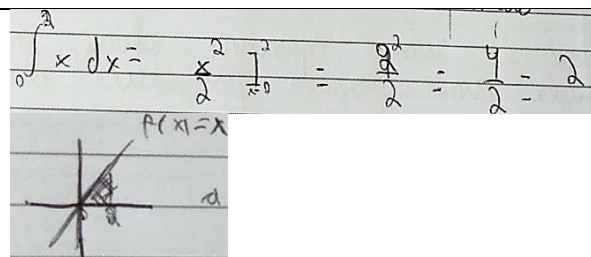 ∫₀² x dx = x²/2 ]²ₓ₌₀ = 2²/2 = 4/2 = 2
f(x) = x
2